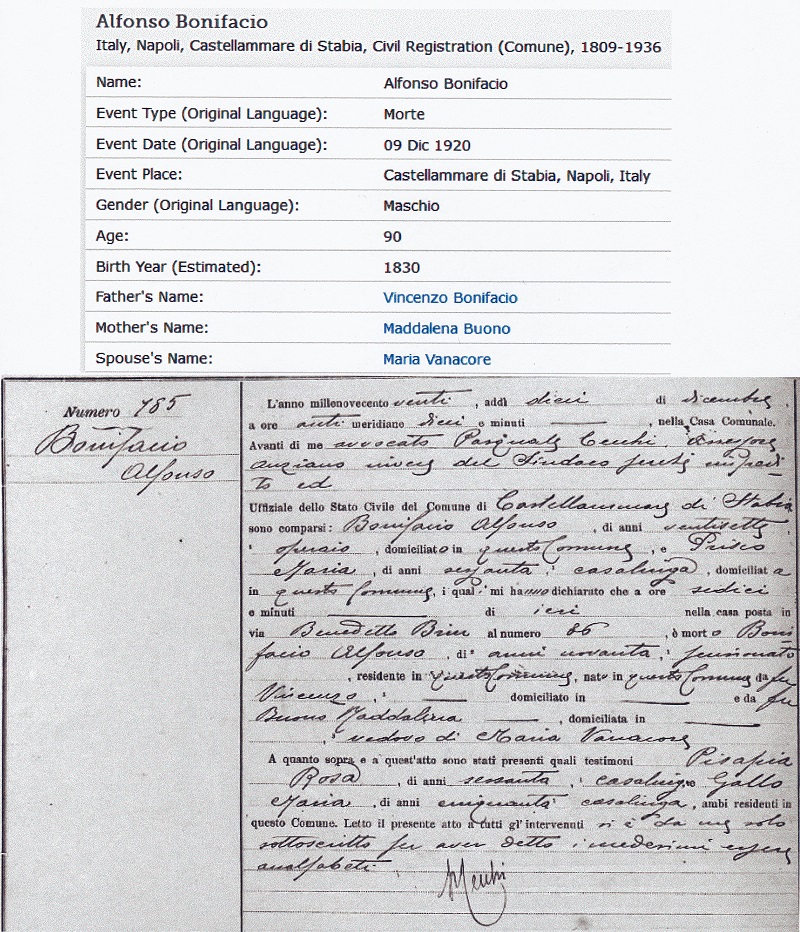 Alfonso Bonifacio
Italy, Napoli, Castellammare di Stabia, Civil Registration (Comune), 1809-1936
Name: Alfonso Bonifacio
Event Type (Original Language): Morte
Event Date (Original Language): 09 Dic 1920
Event Place: Castellammare di Stabia, Napoli, Italy
Gender (Original Language): Maschio
Age: 90
Birth Year (Estimated): 1830
Father's Name: Vincenzo Bonifacio
Mother's Name: Maddalena Buono
Spouse's Name: Maria Vanacore
Numero 785
Bonifacio
Alfonso
L'anno millenovecento venti, addì dieci di dicembre,
a ore anti meridiane dieci e minuti, nella Casa Comunale.
Avanti di me avvocato Pasquale Assessore
anziano del Sindaco
ed
Uffiziale dello Stato Civile del Comune di Castellammare di Stabia
sono comparsi: Bonifacio Alfonso, di anni ventisette,
operaio, domiciliato in questo Comune, e Prisco
Maria, di anni sessanta, casalinga, domiciliata
in questo Comune, i quali mi hanno dichiarato che a ore sedici
e minuti di ieri nella casa posta in
via Benedetto Brin al numero 86, è morto Boni
facio Alfonso, di anni novanta, pensionato
, residente in questo Comune, nato in questo Comune da fu
Vincenzo, domiciliato in e da fu
Buono Maddalena, domiciliata in
, vedovo di Maria Vanacore
A quanto sopra e a quest'atto sono stati presenti quali testimoni Pisapia
Rosa, di anni sessanta, casalinga e Gallo
Maria, di anni cinquanta casalinga, ambi residenti in
questo Comune. Letto il presente atto a tutti gl'intervenuti si è da me solo
sottoscritto per aver detto i medesimi essere
analfabeti.